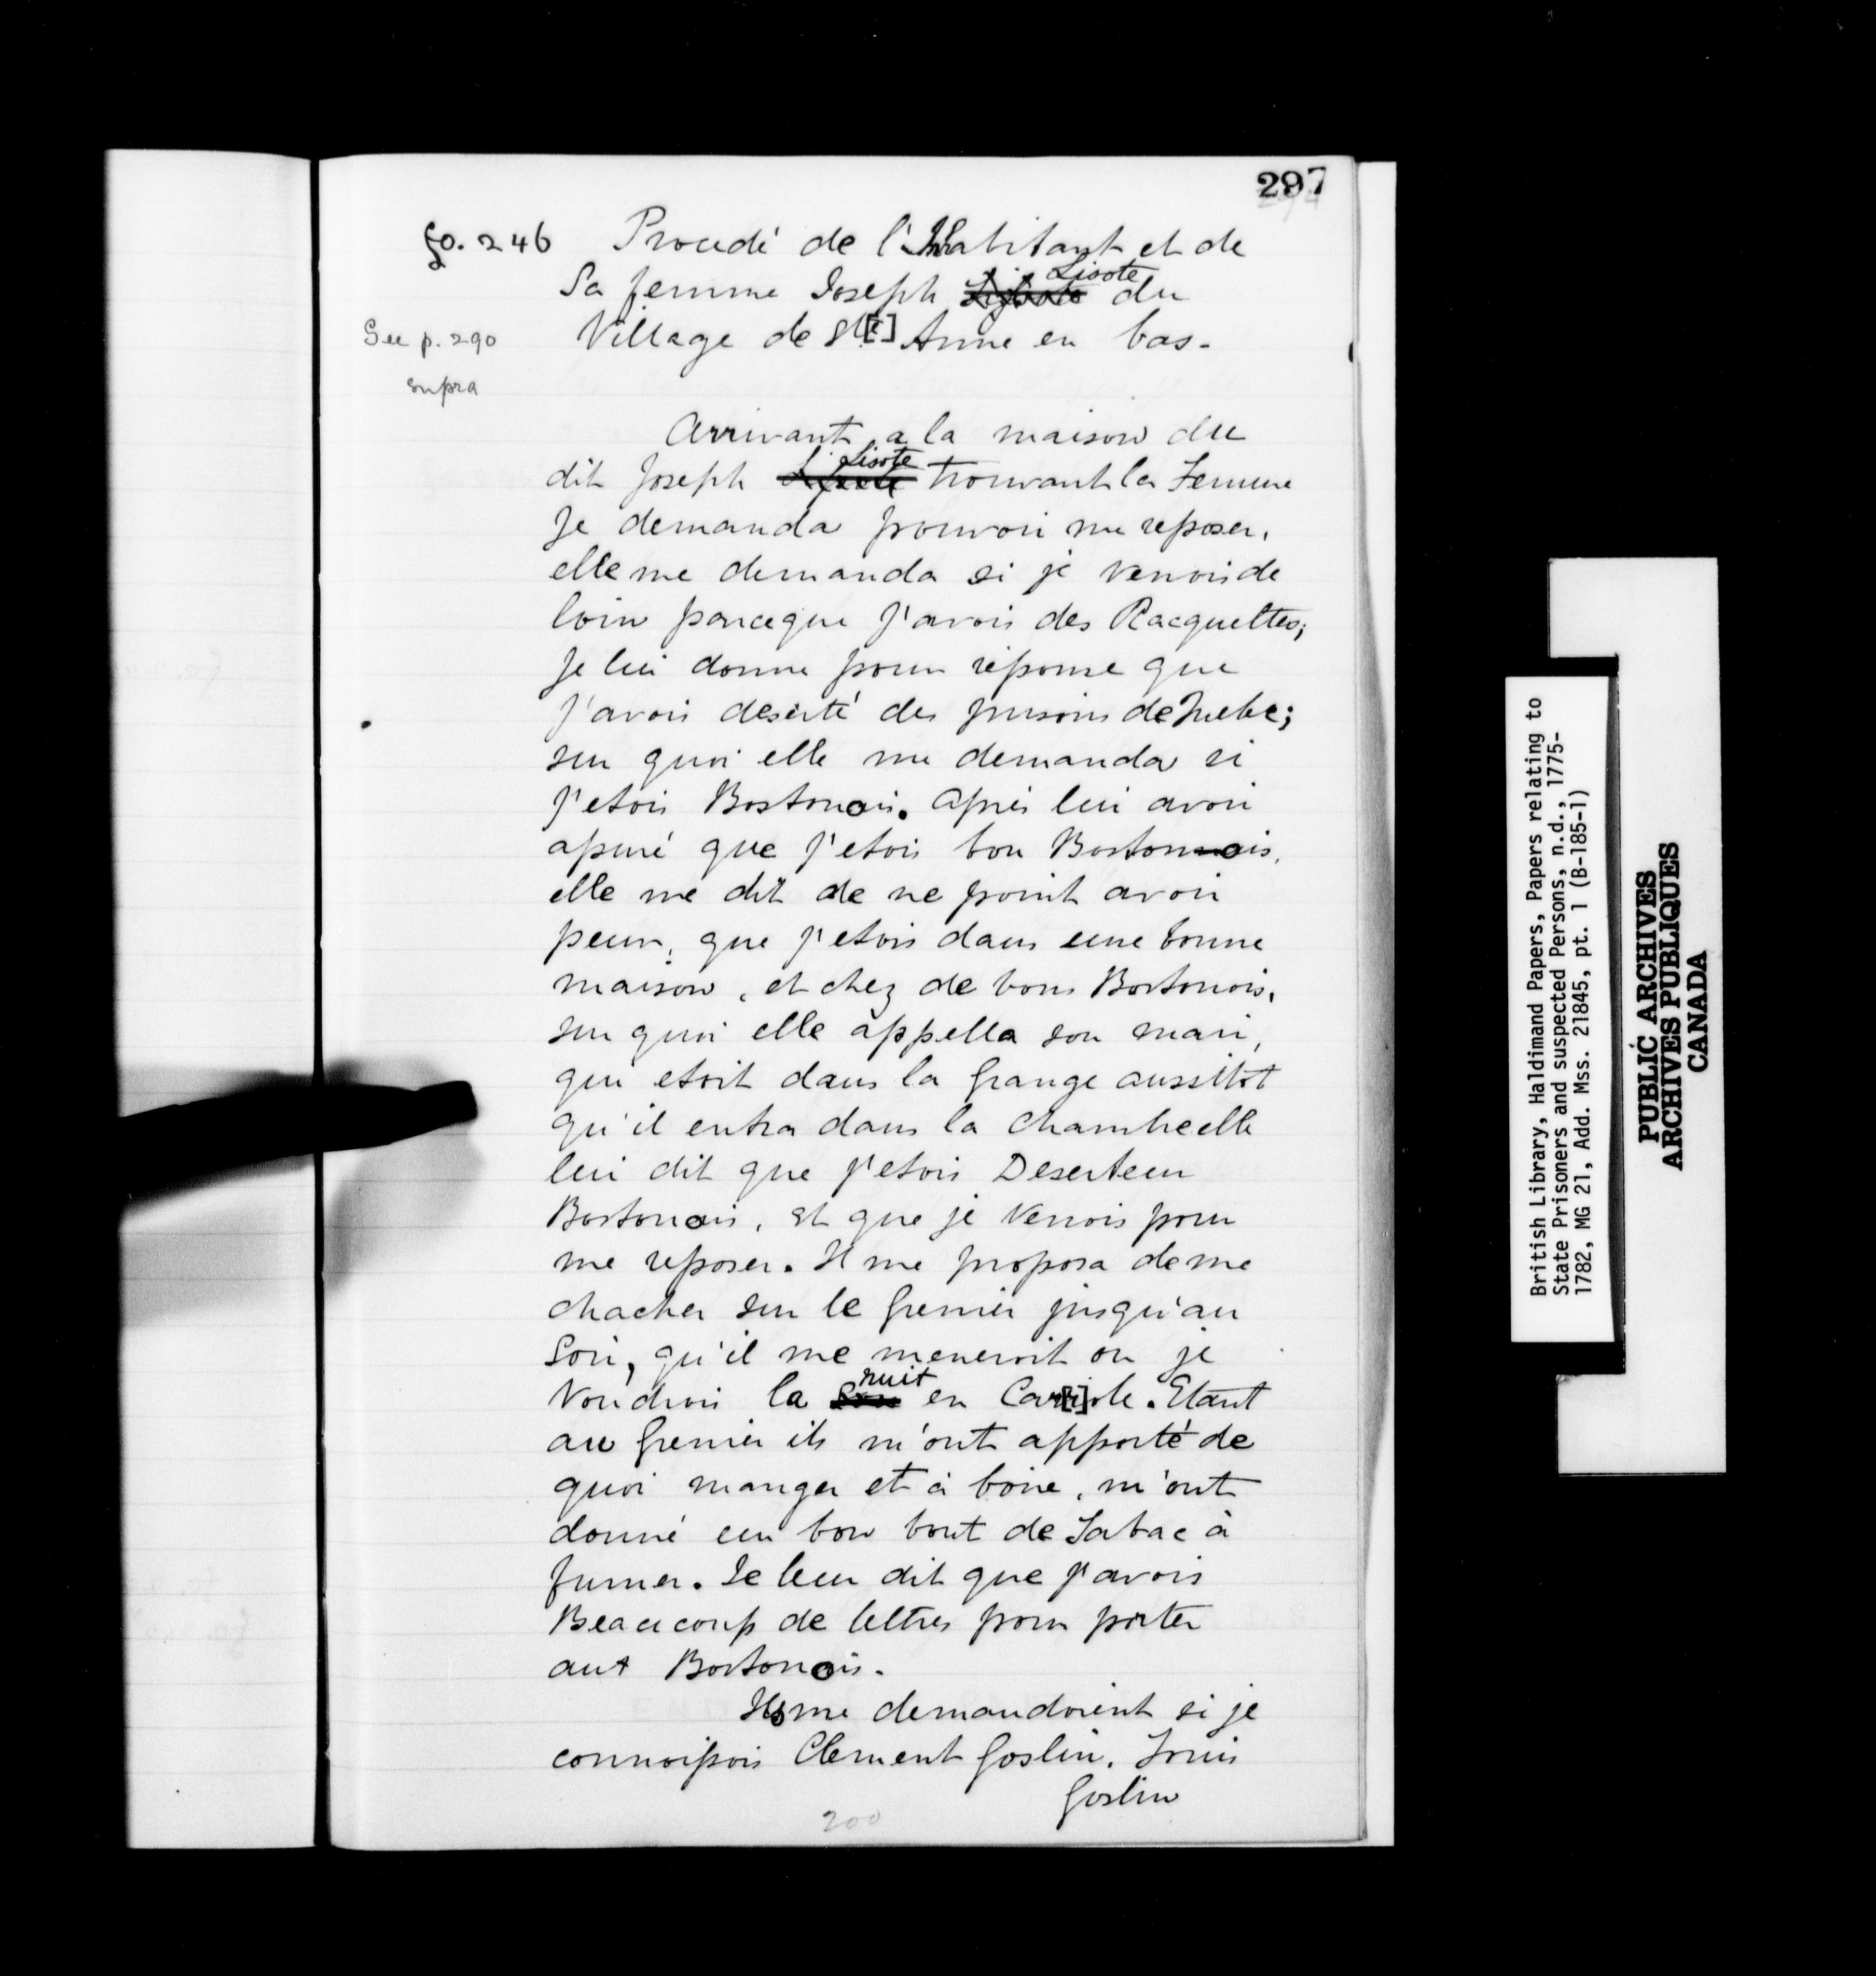 297
fo. 246 Procedé de l'Habitant et de
Sa femme Joseph Lisote du
See p. 290 Village de Ste[] Anne en bas.
supra
Arrivant a la maison du
dit Joseph Lisote trouvant la Femme
Je demanda pouvoir me reposer,
elle me demanda si je venois de
loin parceque j'avois des Racquettes;
Je lui donne pour réponse que
J'avois deserté des prisons de Quebec;
sur quoi elle me demanda si
j'etois Bostonois. Après lui avoir
assuré que j'etois bon Bostonnois,
elle me dit de ne point avoir
peur, que j'etois dans une bonne
maison, et chez de bons Bostonois,
sur quoi elle appella son mari,
qui etoit dans la Grange aussitôt
qu'il entra dans la chambre elle
lui dit que j'etois Deserteur
Bostonois, et que je Venois pour
me reposer. Il me proposa de me
chacher sur le Grenier jusqu'au
Soir, qu'il me meneroit ou je
Voudrois la nuit en Cariole. Etant
au Grenier ils m'ont apporté de
quoi manger et à boire, m'ont
donné un bon bout de Tabac à
fumer. Je leur dit que j'avois
Beaucoup de lettres pour porter
aux Bostonois.
Ils me demandoient si je
connoissois Clement Goslin, Louis
Goslin
200
British Library, Haldimand Papers, Papers relating to
State Prisoners and suspected Persons, n.d., 1775-
1782, MG 21, Add. Mss. 21845, pt. 1 (B-185-1)
PUBLIC ARCHIVES
ARCHIVES PUBLIQUES
CANADA